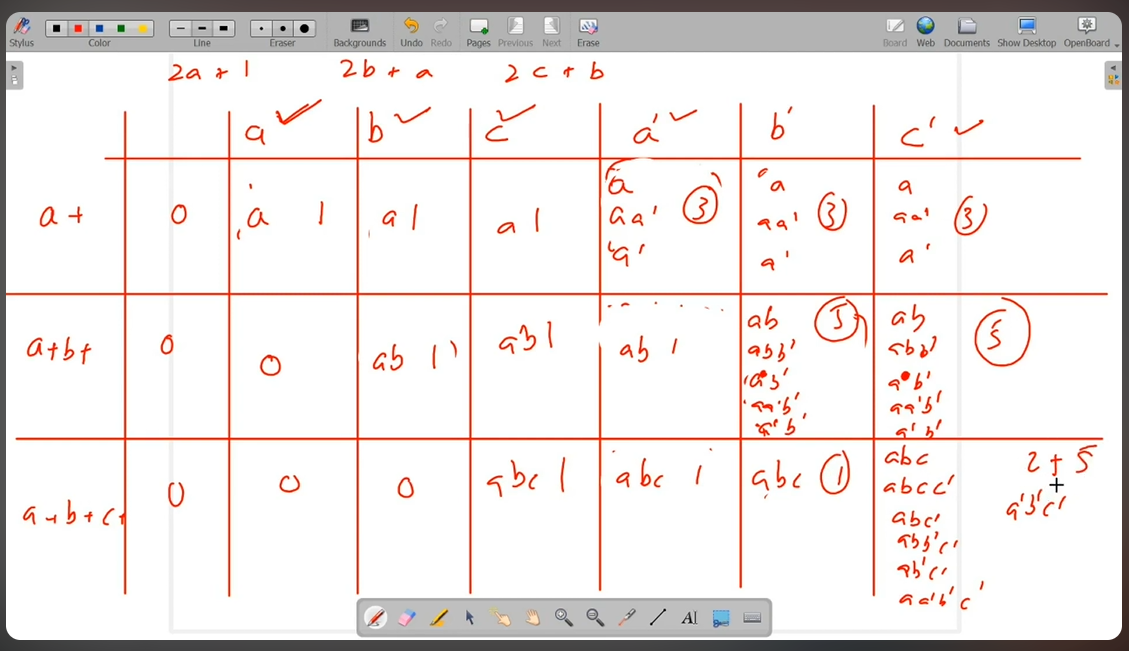 Stylus Color Line Eraser Backgrounds Undo Redo Pages Previous Next Erase Board Web Documents Show Desktop OpenBoard
2a + 1 2b + a 2c + b
a b c a' b' c'
a+ 0 a 1 a 1 a 1
a
aa' 3
a'
a
aa' 3
a'
a
aa' 3
a'
a+b+ 0 0 ab 1 ab 1 ab 1
ab 5
abb'
ab'
aa'b'
a'b'
ab
abb' 5
ab'
aa'b'
a'b'
a+b+c+ 0 0 0 abc 1 abc 1 abc 1
abc
abcc'
abc'
abb'c'
ab'c'
aa'b'c'
2 + 5
a'b'c'
AI